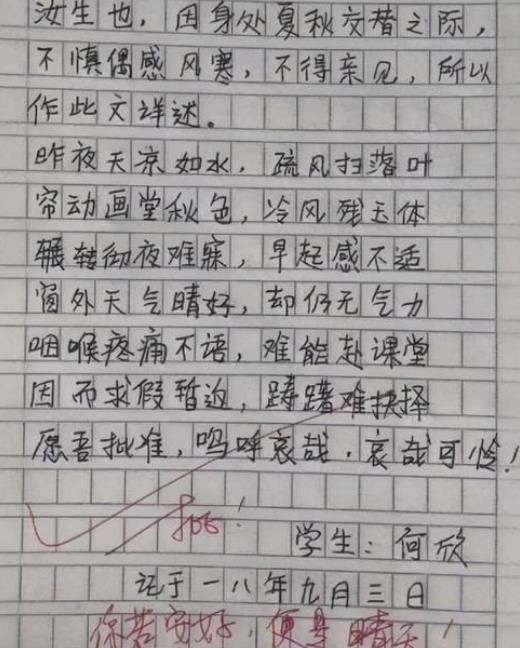 汝生也，因身处夏秋交替之际，
不慎偶感风寒，不得亲见，所以
作此文详述。
昨夜天凉如水，疏风扫落叶
帘动画堂秋色，冷风残玉体
辗转彻夜难寐，早起感不适
窗外天气晴好，却仍无气力
咽喉疼痛不语，难能赴课堂
因而求假暂边，踌躇难抉择
愿吾批准，呜呼哀哉，哀哉可怜！
批！
学生：何欣
记于一八年九月三日
你若安好，便是晴天！